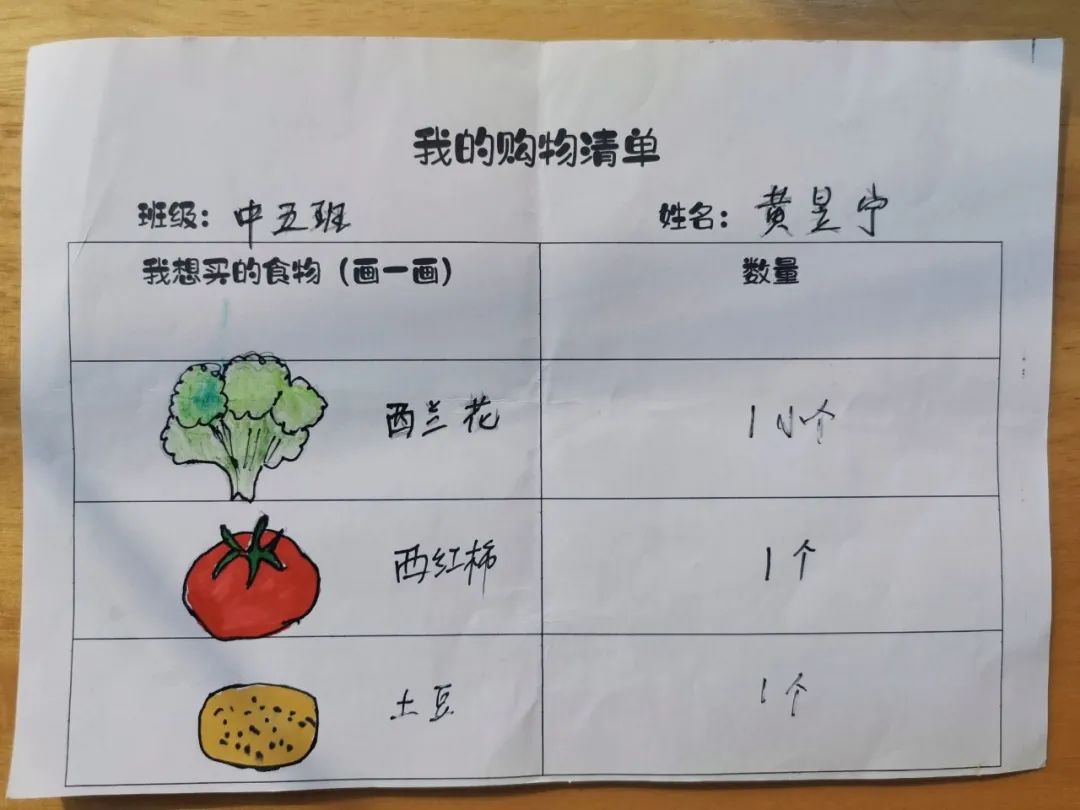 我的购物清单
班级：中五班 姓名：黄昱宁
我想买的食物（画一画） 数量
西兰花 1小个
西红柿 1个
土豆 1个